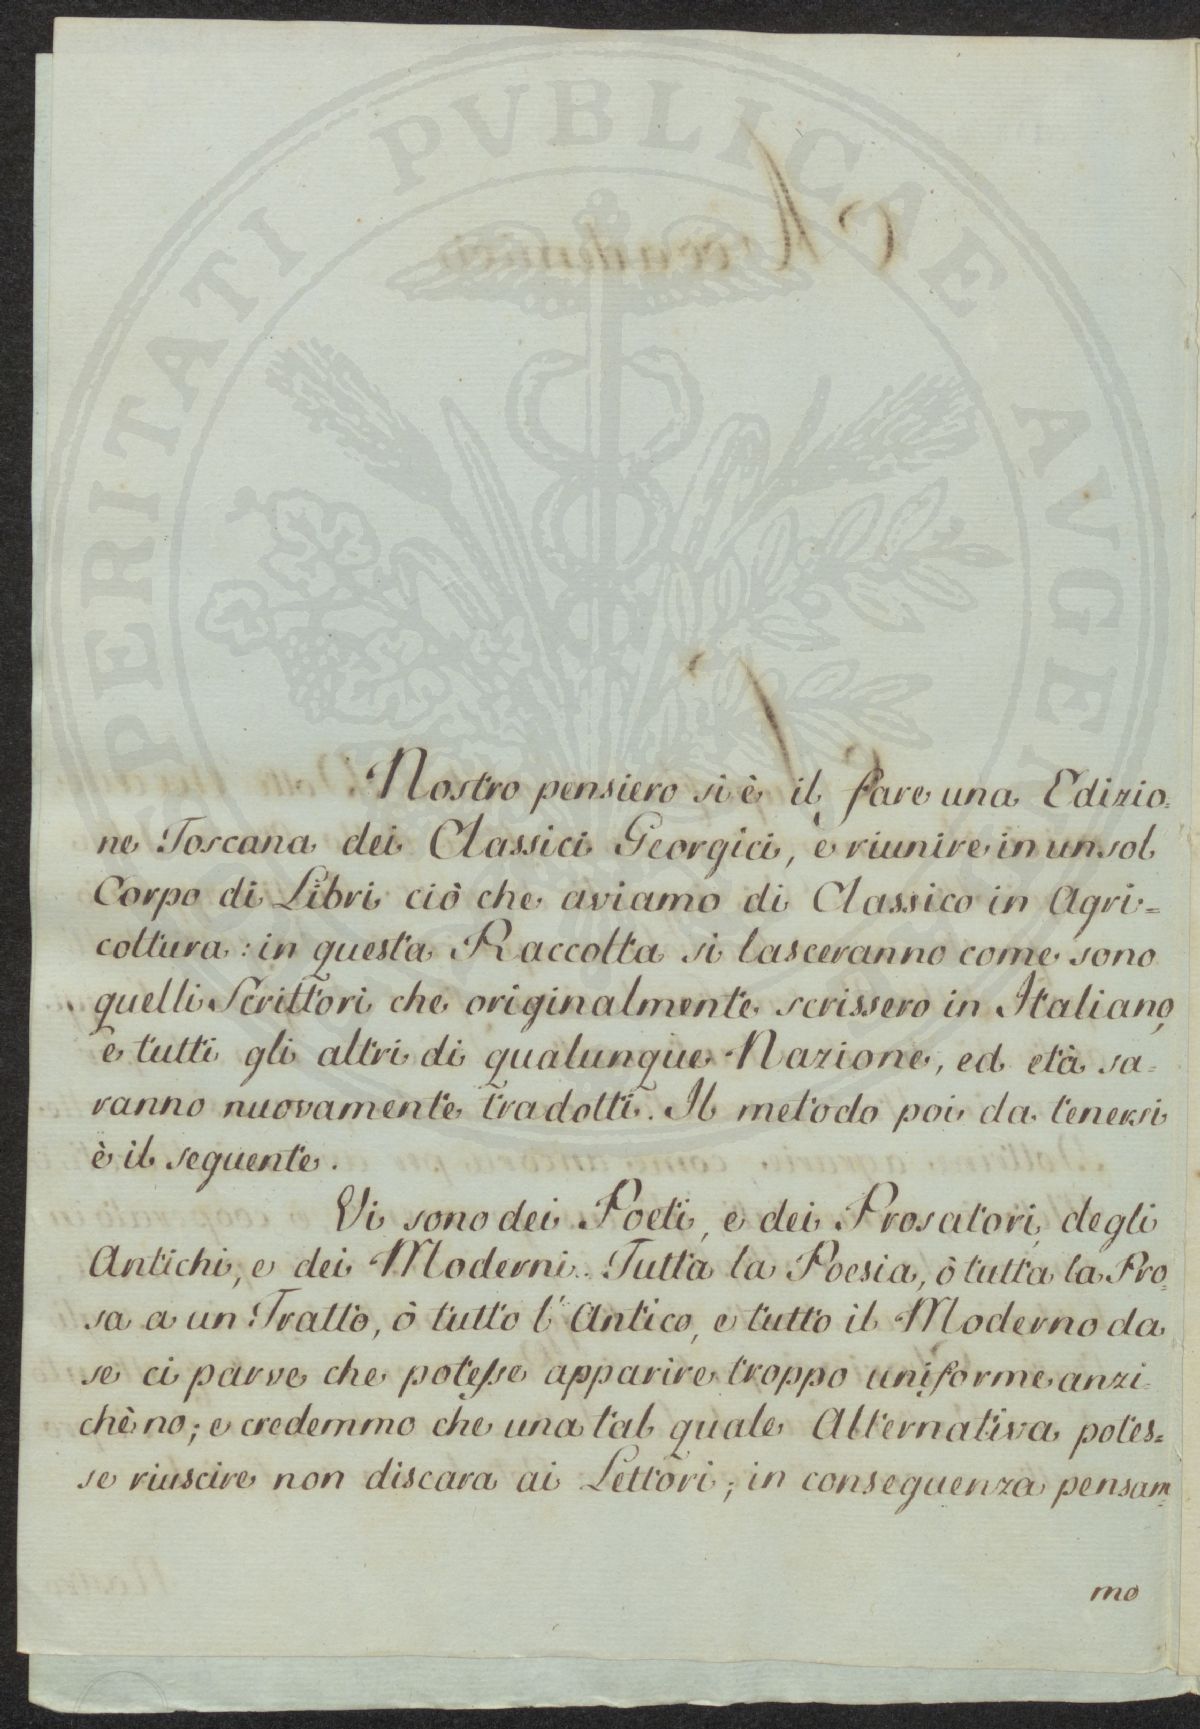 PROSPERITATI PVBLICAE AVGENDAE
Nostro pensiero si è il fare una Edizio=
ne Toscana dei Classici Georgici, e riunire in un sol
Corpo di Libri ciò che aviamo di Classico in Agri=
coltura: in questa Raccolta si lasceranno come sono
quelli Scrittori che originalmente scrissero in Italiano,
e tutti gli altri di qualunque Nazione, ed età sa=
ranno nuovamente tradotti. Il metodo poi da tenersi
è il seguente.
Vi sono dei Poeti, e dei Prosatori, degli
Antichi, e dei Moderni. Tutta la Poesia, ò tutta la Pro=
sa a un Tratto, ò tutto l'Antico, e tutto il Moderno da
se ci parve che potesse apparire troppo uniforme anzi=
chè no; e credemmo che una tal quale Alternativa potes=
se riuscire non discara ai Lettori; in conseguenza pensam=
mo